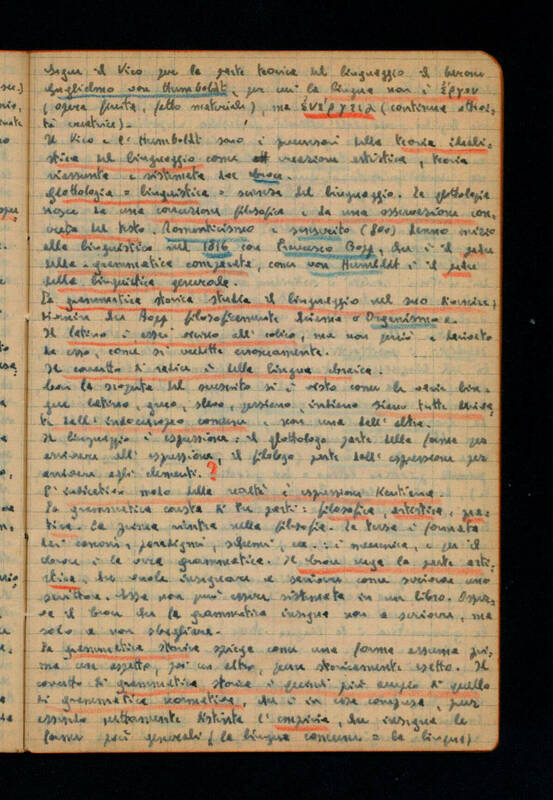 Segue il Vico per la parte teorica del linguaggio il barone
Guglielmo von Humboldt, per cui la lingua non è ἔργον
(opera finita, fatto materiale), ma ἐνέργεια (continua attivi-
tà creatrice).
Il Vico e l'Humboldt sono i precursori della teoria ideali-
stica del linguaggio come creazione artistica, teoria
riassunta e sistemata dal Croce.
Glottologia = linguistica = scienza del linguaggio. La glottologia
nasce da una concezione filosofica e da una osservazione con-
creta del fatto. Romanticismo e sanscrito (800) danno inizio
alla linguistica nel 1816 con Francesco Bopp, che è il padre
della grammatica comparata, come von Humboldt è il padre
della linguistica generale.
La grammatica storica studia il linguaggio nel suo divenire,
divenire che Bopp filosoficamente chiama Organismo.
Il latino è assai vicino all'eolico, ma non perciò è derivato
da esso, come si credette erroneamente.
Il concetto di radice è della lingua ebraica.
Con la scoperta del sanscrito si è visto come le varie lin-
gue latino, greco, slavo, persiano, indiano siano tutte deriva-
te dall'indoeuropeo comune e non una dall'altra.
Il linguaggio è espressione: il glottologo parte dalla forma per
arrivare all'espressione, il filologo parte dall'espressione per
arrivare agli elementi. ?
L'indicativo modo della realtà è espressione Kantiana.
La grammatica consta di tre parti: filosofica, artistica, pra-
tica. La prima rientra nella filosofia. La terza è formata
dei canoni, paradigmi, schemi, ecc.: è mnemonica, e per il
Croce è la vera grammatica. Il Croce nega la parte arti-
stica, che vuole insegnare a scrivere come scrivono uno
scrittore. Essa non può essere sistemata in un libro. Osser-
va il Croce che la grammatica insegna non a scrivere, ma
solo a non sbagliare.
La grammatica storica spiega come una forma assuma pri-
ma un aspetto, poi un altro, pure storicamente esatto. Il
concetto di grammatica storica è quindi più ampio di quello
di grammatica normativa, che è in essa compresa, pur
essendo nettamente distinte l'empiria, che insegna le
forme più generali (la lingua comune = la lingua)